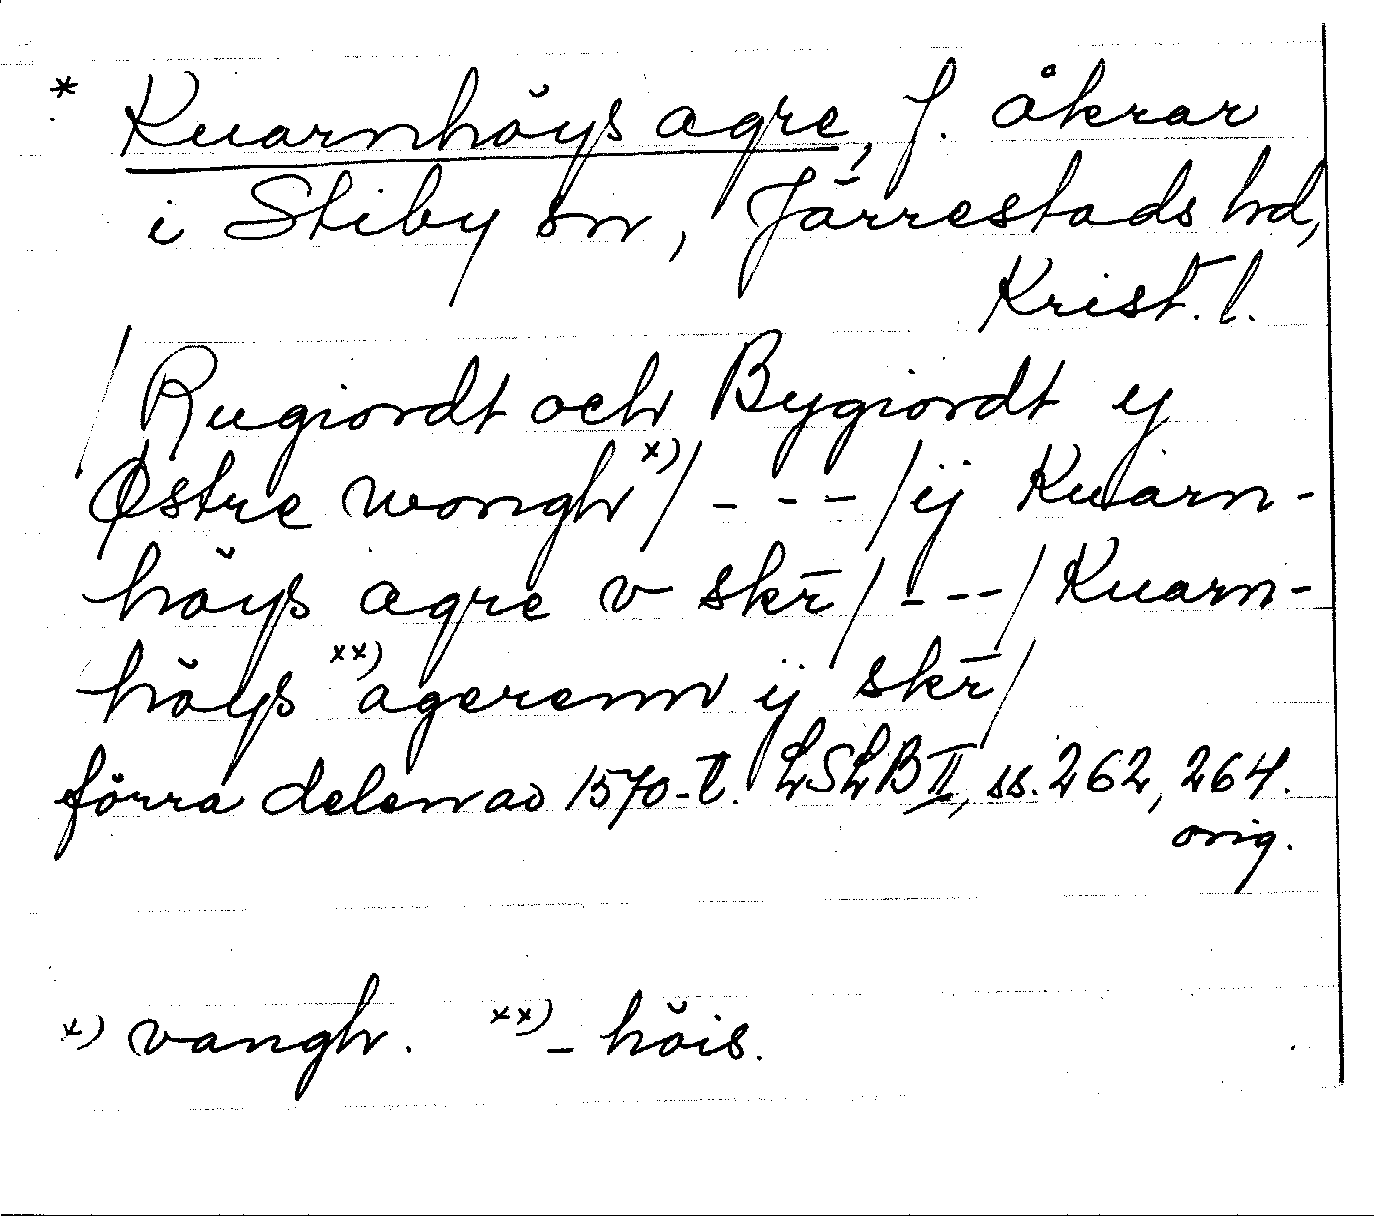 * Kuarnhŏys agre, f. åkrar
i Stiby sn, Järrestads hd,
Krist. l.
/Rugiordt och Bygiordt ij
Østre wongh x)/ - - - /ij Kuarn-
hŏys agre v skr̄/ - - - /Kuarn-
hŏys xx) agerenn ij skr̄/
förra delen av 1570-t. LSLB II, ss. 262, 264.
orig.
x) vangh. xx) - hŏis.